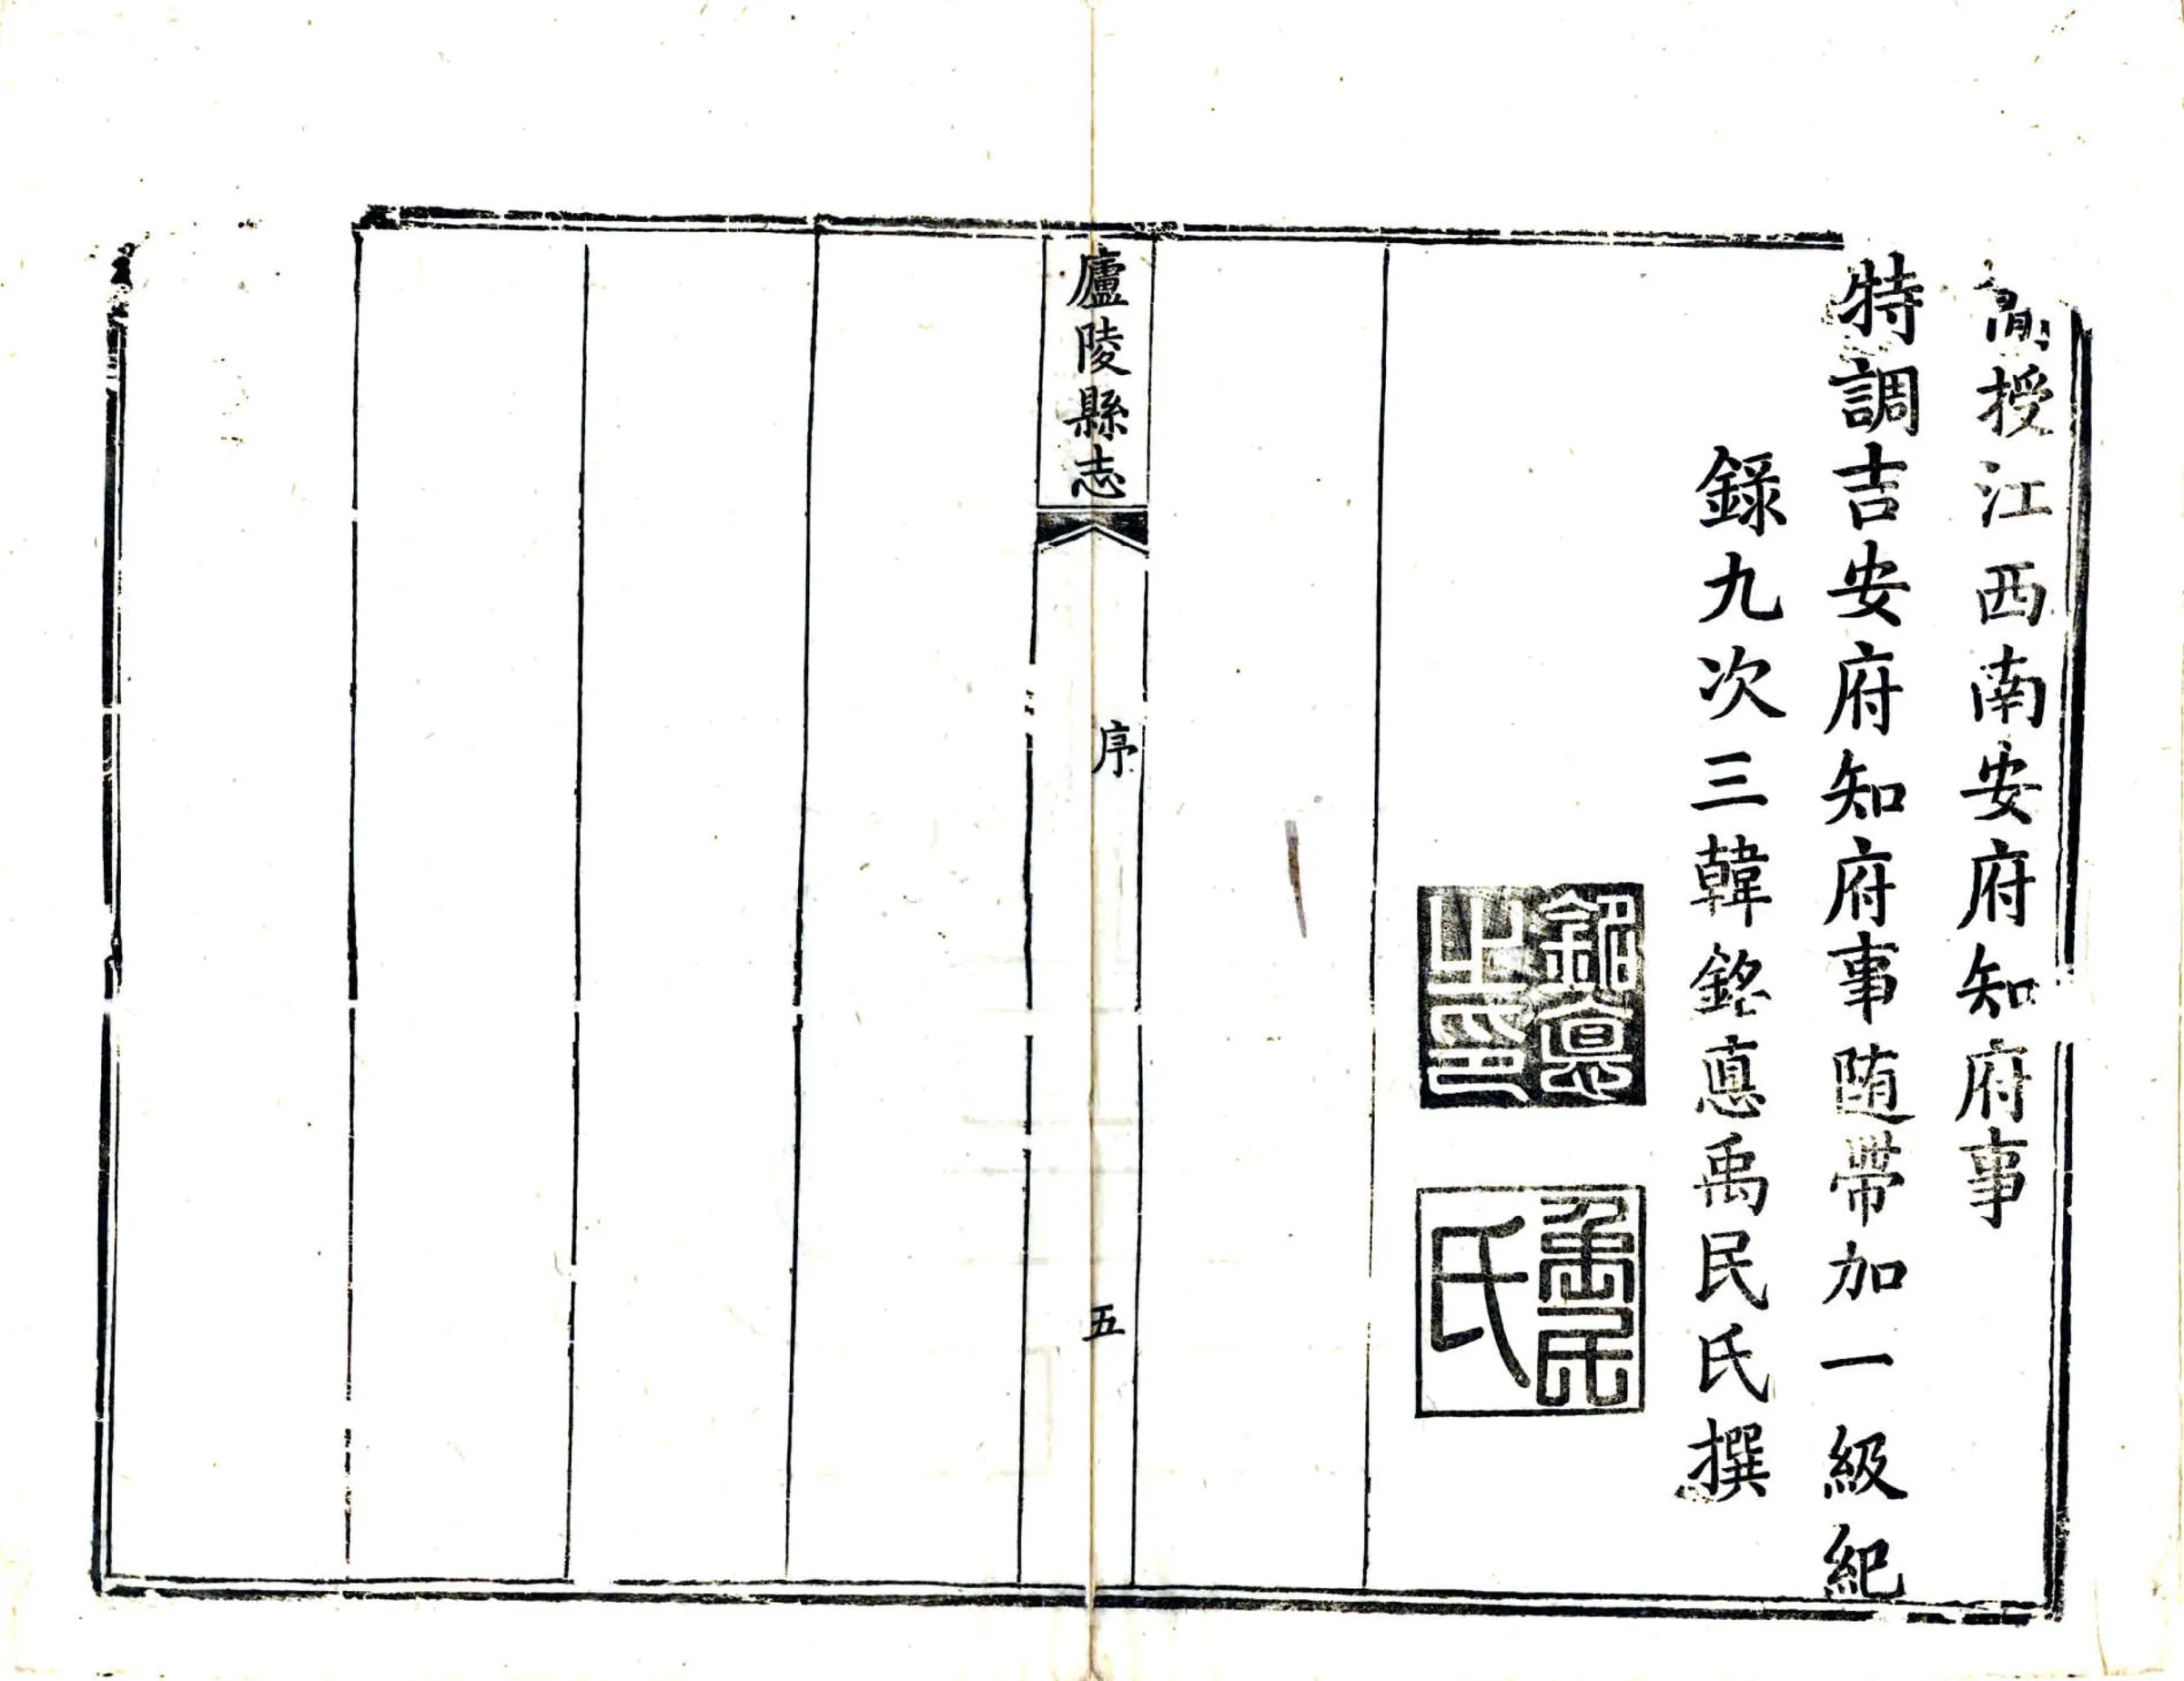 簡授江西南安府知府事
特調吉安府知府事随帶加一級紀
錄九次三韓銘惪禹民氏撰
銘惪之印
禹民氏
廬陵縣志
序
五